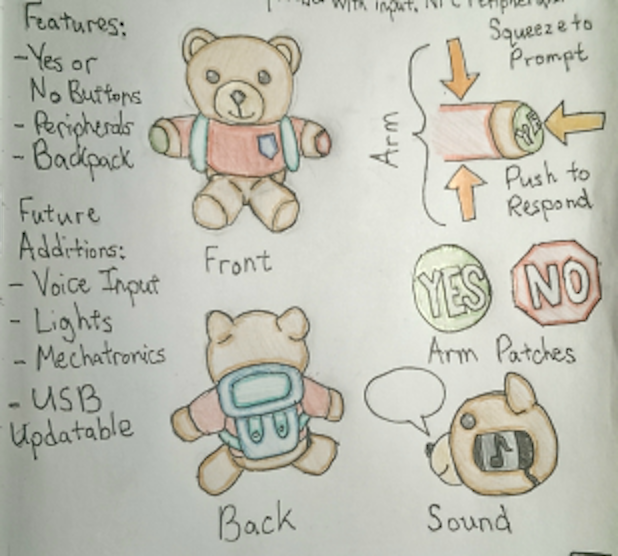 with input, NFC Peripheral
Features:
-Yes or
No Buttons
- Peripherals
- Backpack
Future
Additions:
- Voice Input
- Lights
- Mechatronics
- USB
Updatable
Front
Back
Arm
Squeeze to
Prompt
YES
Push to
Respond
YES
NO
Arm Patches
Sound